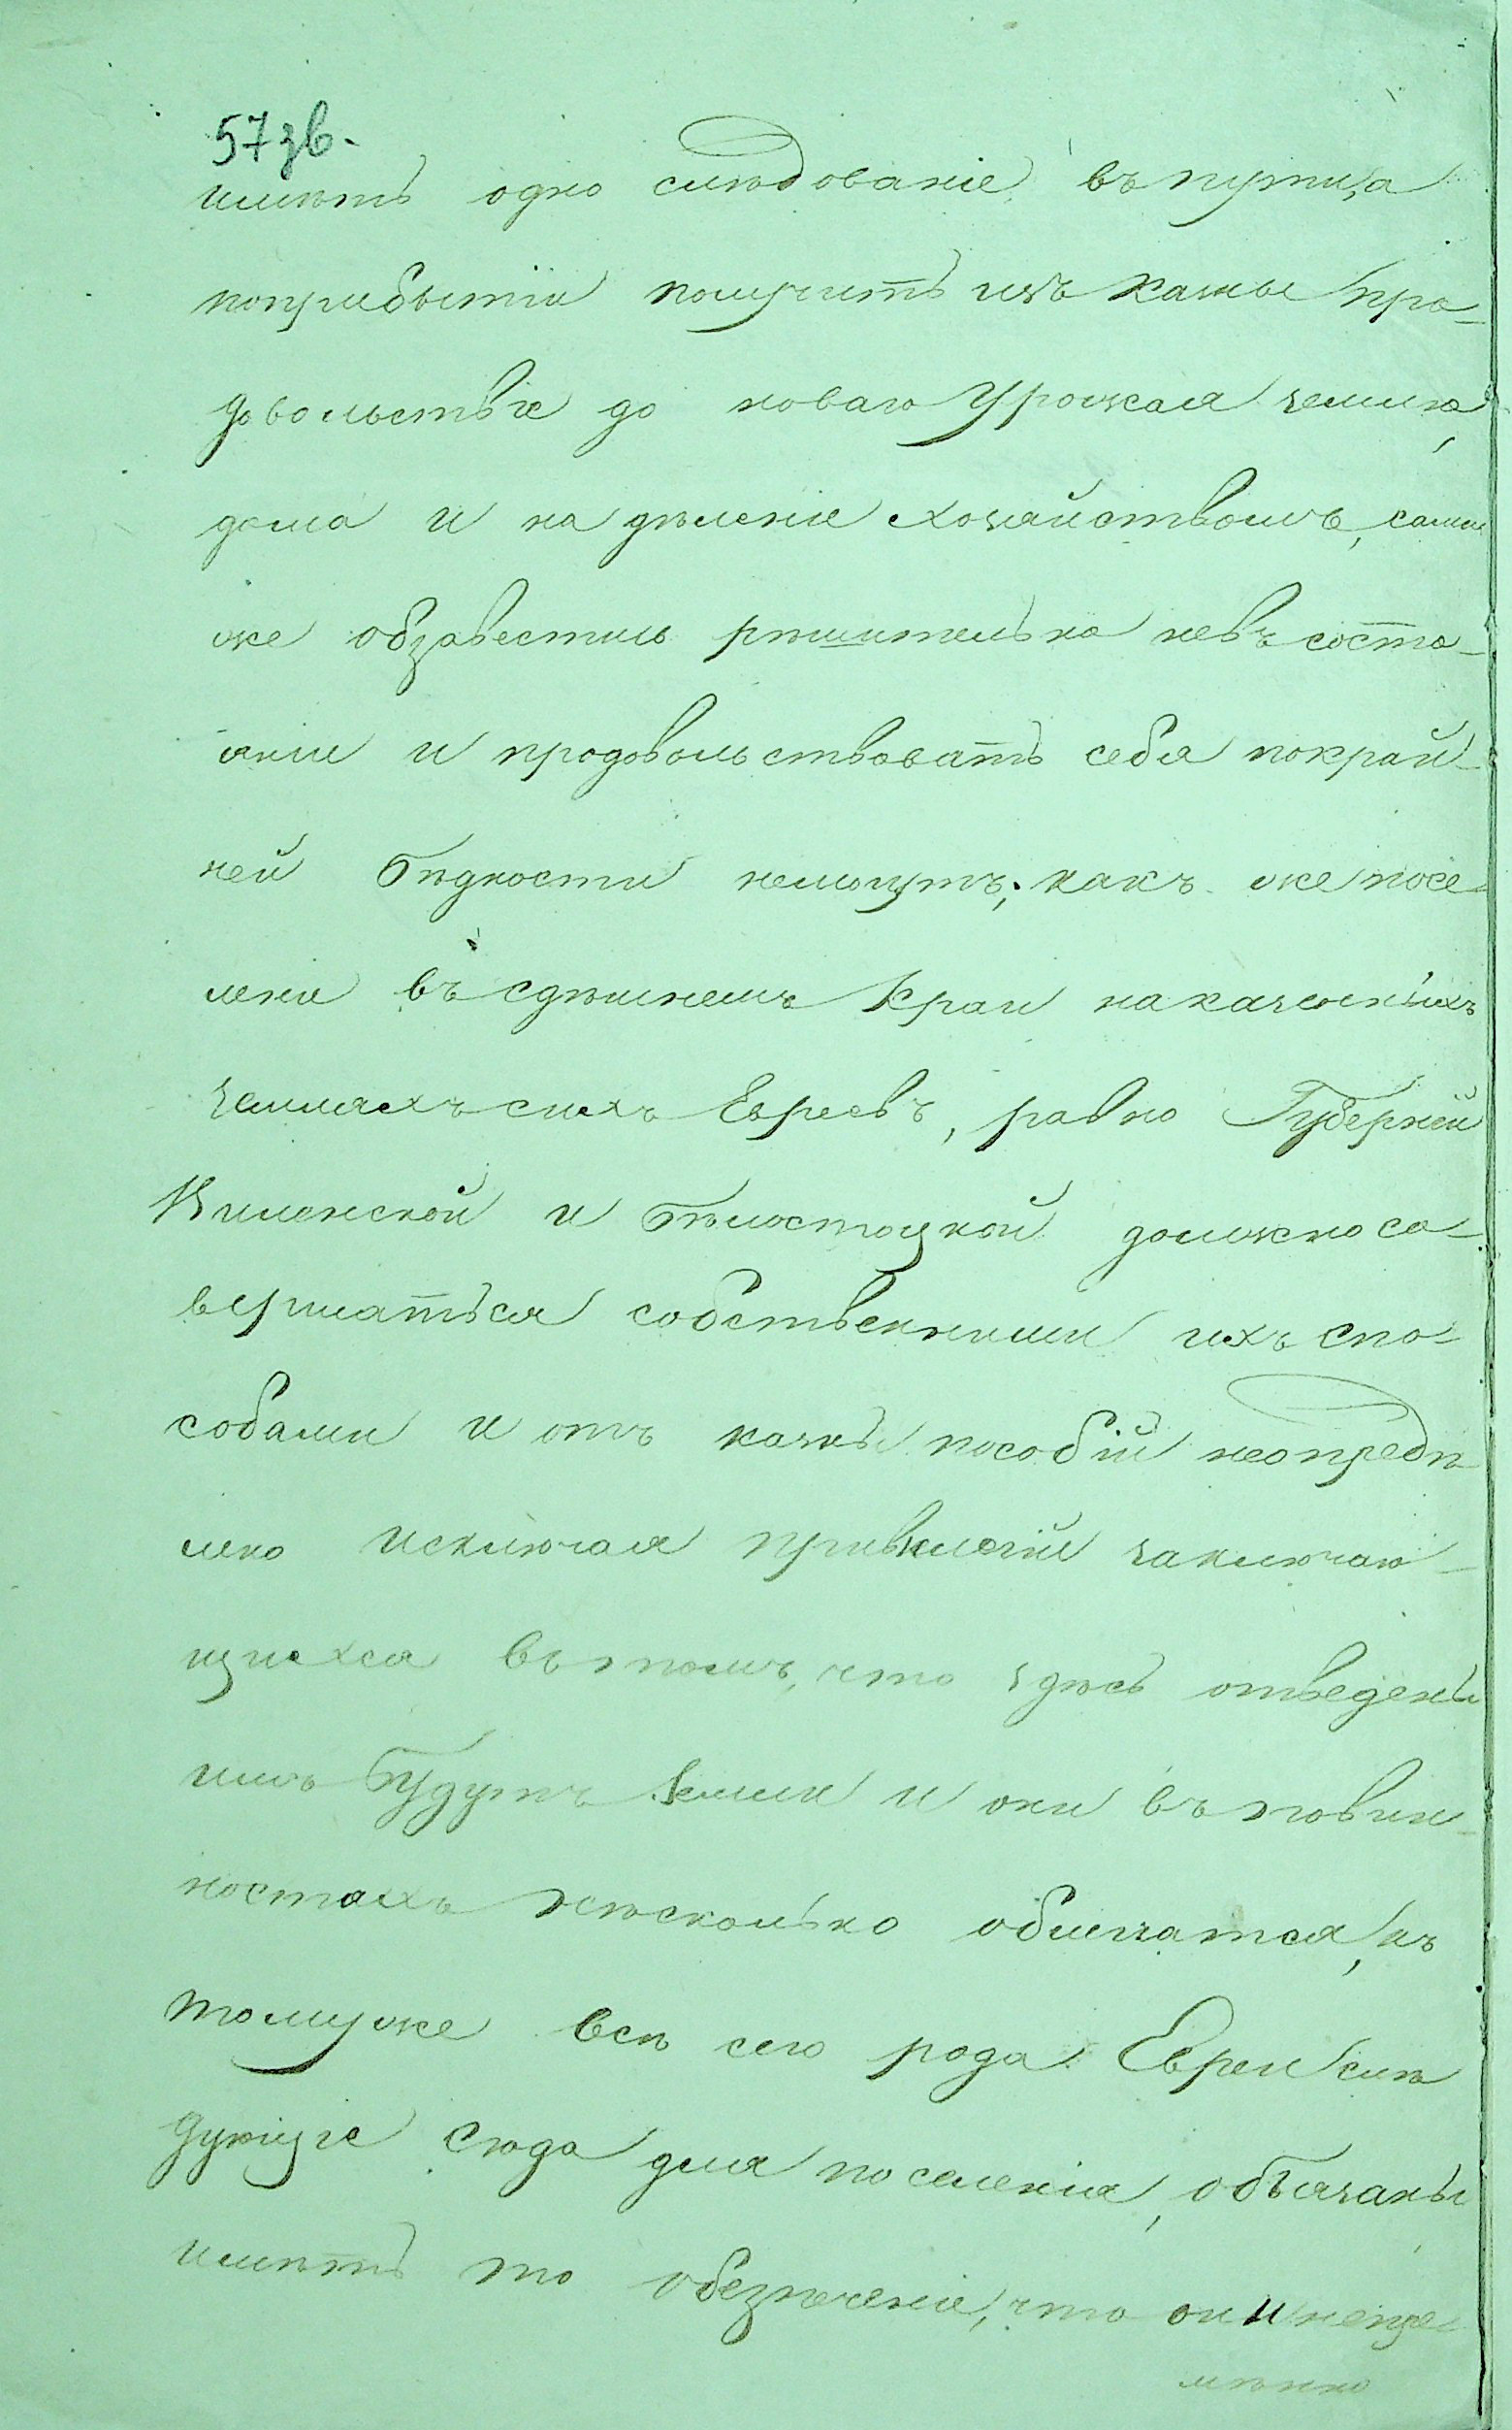 57 зв.
имѣть одно слѣдованіе въ пути, а
поприбытіи получить изъ казны про-
довольствіе до новаго урожая земли,
дома и на дѣленіе хозяйствомъ, сами
же обзавестись рѣшительно невъ состо-
яніи и продовольствовать себя покрай-
ней бѣдности немогутъ; какъ же посе-
леніе въ сдѣшнемъ Краи на казенныхъ
земляхъ сихъ Евреевъ, равно Губерній
Виленской и Бѣлостоцкой должно со-
вершаться собственными ихъ спо-
собами и отъ казны пособій неопредѣ
лено исключая привилегій заключаю-
щихся въ томъ, что здѣсь отведены
имъ будутъ земли и они въ повин-
ностахъ нѣсколько облегчатся, къ
томуже всѣ сего рода Евреи слѣ
дующіе сюда для поселенія, обязаны
имѣть то обезпеченіе, что они непре
мѣнно